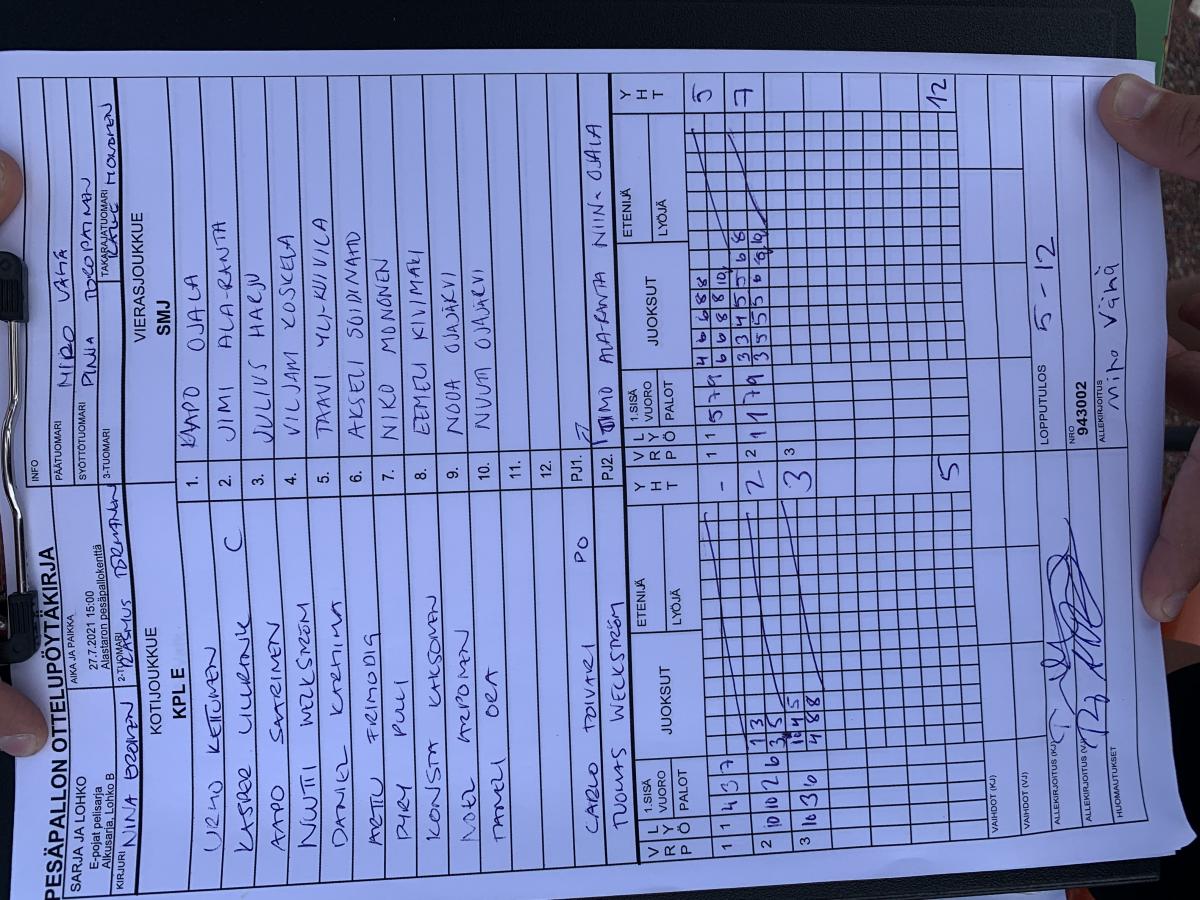 PESÄPALLON OTTELUPÖYTÄKIRJA
SARJA JA LOHKO
E-pojat pelisarja
Alkusarja, Lohko B
AIKA JA PAIKKA
27.7.2021 15:00
Alastaron pesäpallokenttä
INFO
PÄÄTUOMARI MIRO VÄHÄ
SYÖTTÖTUOMARI PINJA
KIRJURI NINA
2-TUOMARI RASMUS
3-TUOMARI
TAKARAJATUOMARI KALLE MONONEN
KOTIJOUKKUE
KPL E
VIERASJOUKKUE
SMJ
URHO KETTUNEN 1. KAAPO OJALA
C 2. JIMI ALA-RANTA
AAPO SAARINEN 3. JULIUS HARJU
NUUTTI WECKSTRÖM 4. VILJAMI KOSKELA
DANIEL KARHUMA 5. TAAVI YLI-KUIVILA
ARTTU FRIMODIG 6. AKSELI SOIDINAHO
PYRY PULLI 7. NIKO MONONEN
KONSTA KAKSONEN 8. EEMELI KIVIMÄKI
NOEL 9. NOOA OJAJÄRVI
TANELI ORA 10. NUUTI OJAJÄRVI
11.
12.
CARLO TOIVARI PO PJ1.
TUOMAS WECKSTRÖM PJ2. TIMO ALA-RANTA NIINA OJALA
V L
R Y
P Ö
1.SISÄ
VUORO
PALOT
JUOKSUT
ETENIJÄ
LYÖJÄ
Y
H
T
V L
R Y
P Ö
1.SISÄ
VUORO
PALOT
JUOKSUT
ETENIJÄ
LYÖJÄ
Y
H
T
1 1 4 3 7 -
2 10 10 2 6 2
1 3
3 5
3 10 3 6 3
10 4 5
4 8 8
5
1 1 5 7 9 5
4 6 6 8 8
6 6 8 8 10
2 1 1 7 9 7
3 3 4 5 5 6 8
3 5 5 5 6 8 10
3
12
VAIHDOT (KJ)
VAIHDOT (VJ)
ALLEKIRJOITUS (KJ)
ALLEKIRJOITUS (VJ)
HUOMAUTUKSET
LOPPUTULOS 5-12
NRO
943002
ALLEKIRJOITUS
Miro Vähä